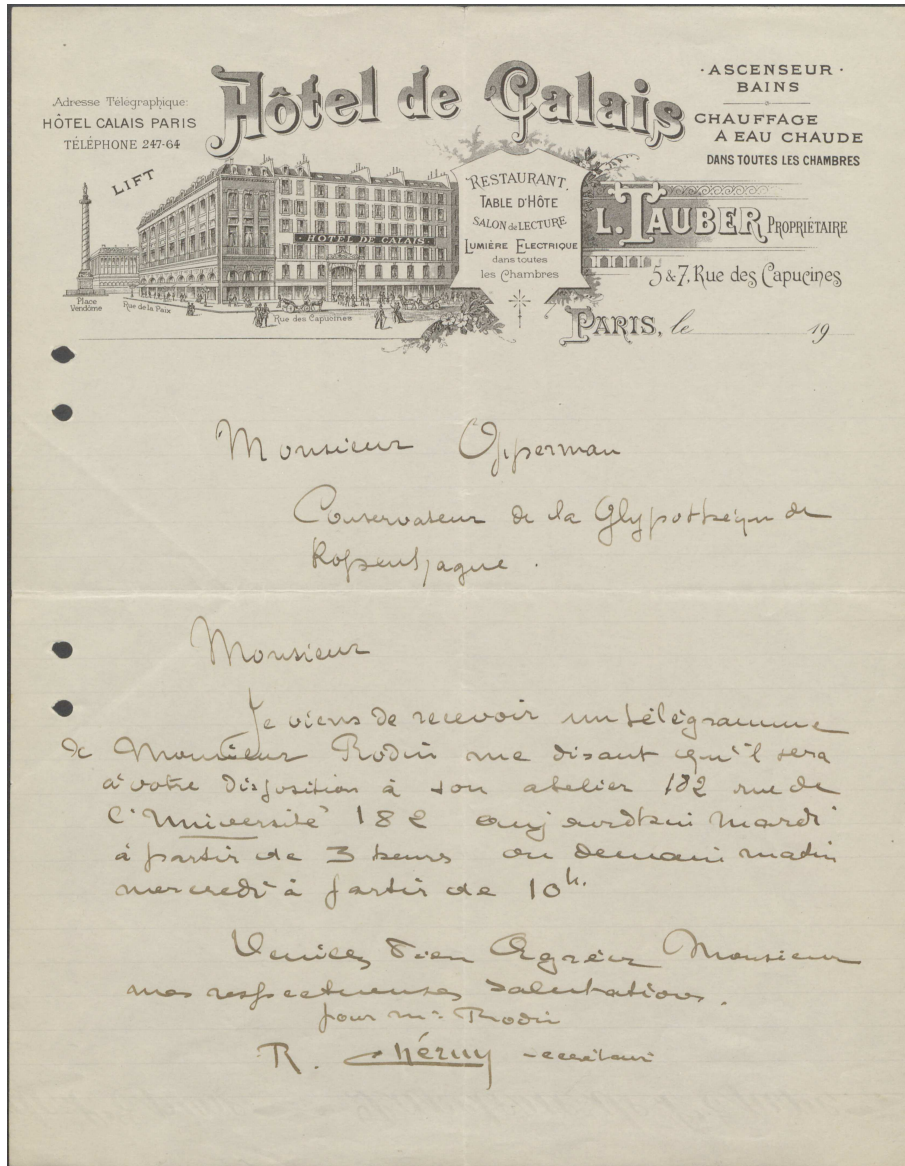 Adresse Télégraphique:
HÔTEL CALAIS PARIS
TÉLÉPHONE 247-64
Hôtel de Calais
· ASCENSEUR ·
BAINS
CHAUFFAGE
A EAU CHAUDE
DANS TOUTES LES CHAMBRES
LIFT
HOTEL DE CALAIS
Place
Vendôme
Rue de la Paix
Rue des Capucines
RESTAURANT.
TABLE D'HÔTE
SALON de LECTURE
LUMIÈRE ELECTRIQUE
dans toutes
les Chambres
L. TAUBER PROPRIÉTAIRE
5 & 7, Rue des Capucines
PARIS, le 19
Monsieur Opperman
Conservateur de la Glypothèque de
Kopenhague.
Monsieur
Je viens de recevoir un télégramme
de Monsieur Rodin me disant qu'il sera
à votre disposition à son atelier 182 rue de
l'Université 182 aujourdhui mardi
à partir de 3 heures ou demain matin
mercredi à partir de 10h.
Veuillez bien Agréer Monsieur
mes respectueuses salutations.
pour Mr Rodin
R. Chéruy secrétaire